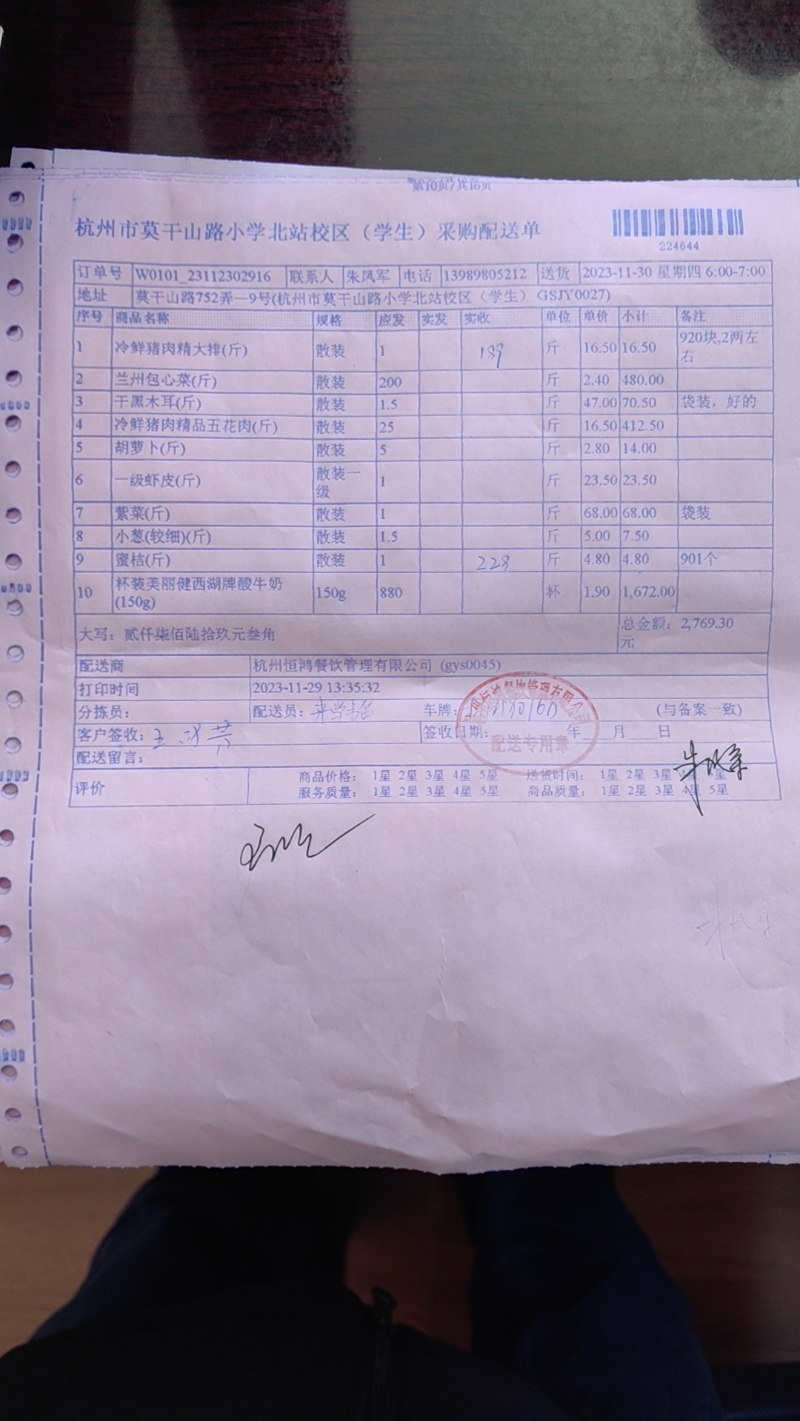 第10页/共10页
杭州市莫干山路小学北站校区（学生）采购配送单
224644
订单号 W0101_23112302916 联系人 朱凤军 电话 13989805212 送货 2023-11-30 星期四 6:00-7:00
地址 莫干山路752弄一9号(杭州市莫干山路小学北站校区（学生） GSJY0027)
序号 商品名称 规格 应发 实发 实收 单位 单价 小计 备注
1 冷鲜猪肉精大排(斤) 散装 1 189 斤 16.50 16.50 920块,2两左右
2 兰州包心菜(斤) 散装 200 斤 2.40 480.00
3 干黑木耳(斤) 散装 1.5 斤 47.00 70.50 袋装，好的
4 冷鲜猪肉精品五花肉(斤) 散装 25 斤 16.50 412.50
5 胡萝卜(斤) 散装 5 斤 2.80 14.00
6 一级虾皮(斤) 散装一级 1 斤 23.50 23.50
7 紫菜(斤) 散装 1 斤 68.00 68.00 袋装
8 小葱(较细)(斤) 散装 1.5 斤 5.00 7.50
9 蜜桔(斤) 散装 1 228 斤 4.80 4.80 901个
10 杯装美丽健西湖牌酸牛奶(150g) 150g 880 杯 1.90 1,672.00
大写：贰仟柒佰陆拾玖元叁角 总金额：2,769.30元
配送商 杭州恒鸿餐饮管理有限公司 (gys0045)
打印时间 2023-11-29 13:35:32
分拣员： 配送员： 车牌： (与备案一致)
客户签收： 签收日期： 年 月 日
配送专用章
配送留言：
评价 商品价格： 1星 2星 3星 4星 5星 送货时间： 1星 2星 3星 4星 5星
服务质量： 1星 2星 3星 4星 5星 商品质量： 1星 2星 3星 4星 5星